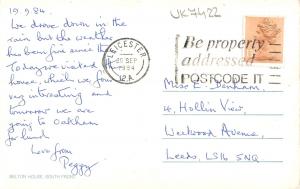 19.9.84.
We drove down in the
rain but the weather
has been fine since then
Today we visited this
house, which we found
very interesting and
tomorrow we are
going to Oakham
for lunch
Love from
Peggy
BELTON HOUSE, SOUTH FRONT
UK7422
LEICESTER
20 SEP
1984
12 A
Be properly
addressed
POSTCODE IT
Miss E. Denham,
4, Hollin View,
Weetwood Avenue,
Leeds, LS16 5NQ